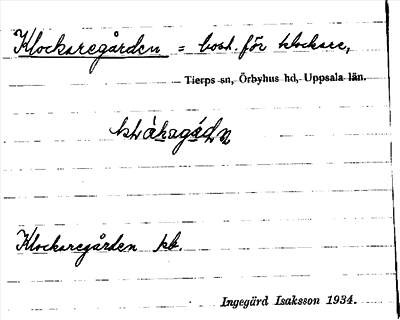 Klockaregården = bost. för klockare,
Tierps sn, Örbyhus hd, Uppsala län.
Klockaregården kb.
Ingegärd Isaksson 1934.